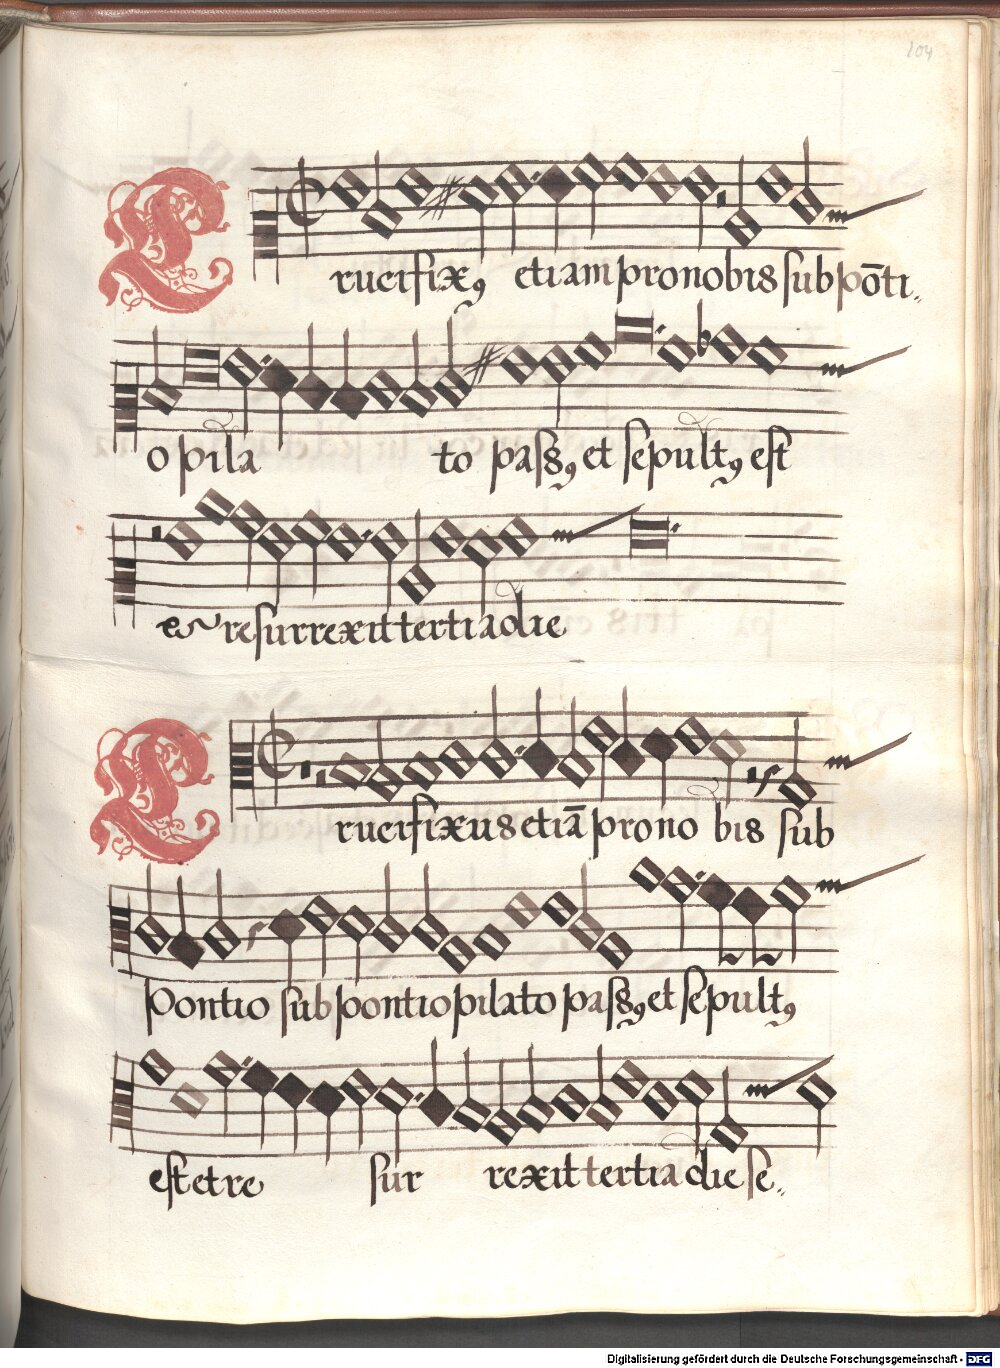 104
Crucifixꝯ etiam pro nobis sub pōti„
o pila to passꝯ et sepultꝯ est
et resurrexit tertia die
Crucifixus etiā pro nobis sub
pontio sub pontio pilato passꝯ et sepultꝯ
est et re sur rexit tertia die se„
Digitalisierung gefördert durch die Deutsche Forschungsgemeinschaft - DFG